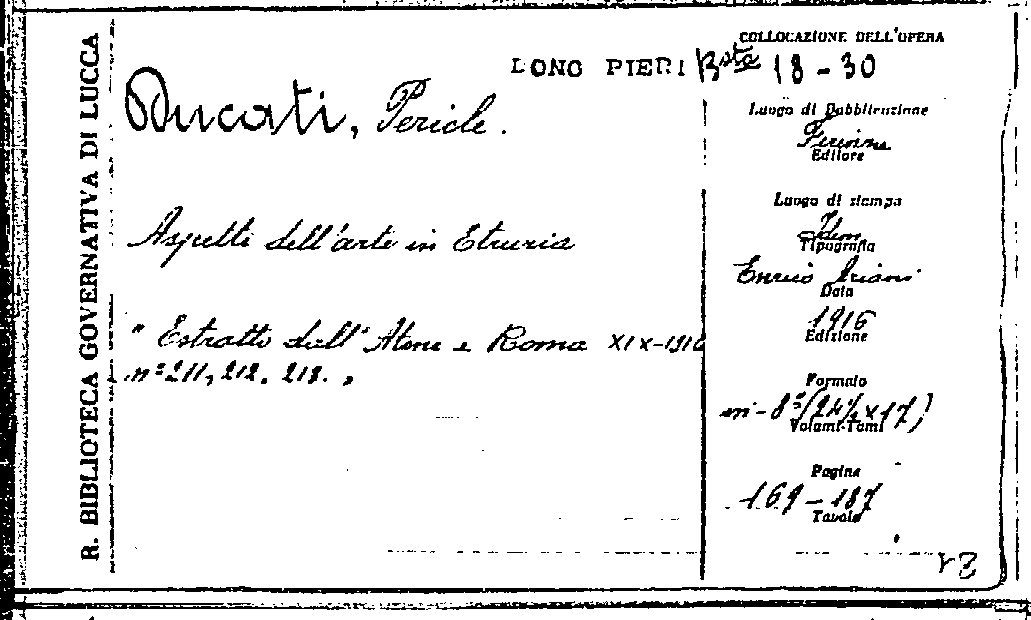 R. BIBLIOTECA GOVERNATIVA DI LUCCA
COLLOCAZIONE DELL'OPERA
DONO PIERI Bsta 18-30
Ducati, Pericle.
Luogo di Pubblicazione
Firenze
Editore
Luogo di stampa
Idem
Tipografia
Aspetti dell'arte in Etruria
Enrico Ariani
Data
1916
Edizione
"Estratto dall'Atene e Roma XIX-1916
nº 211, 212, 213."
Formato
in-8º (24½ x 17)
Volumi-Tomi
Pagine
169-187
Tavole